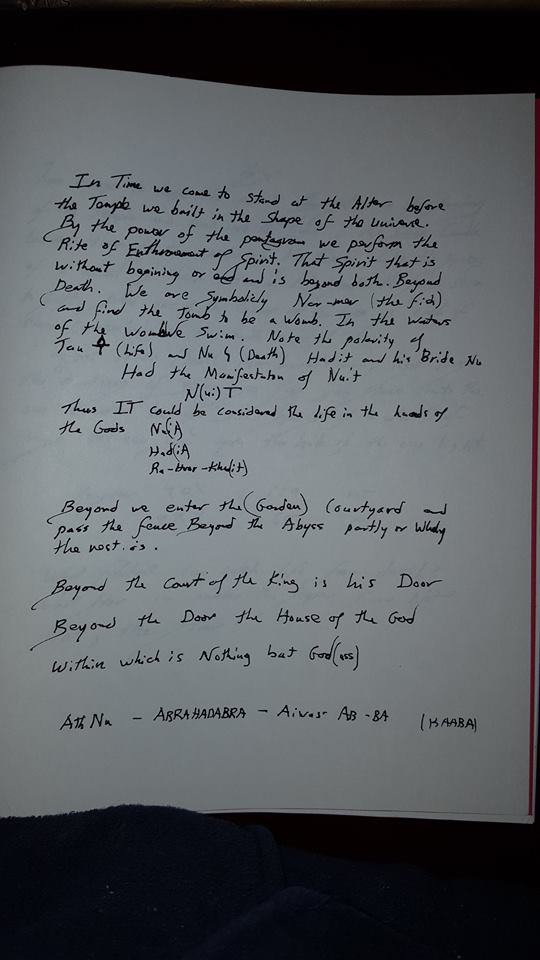 In Time we come to stand at the Alter before
the Temple we built in the Shape of the Universe.
By the power of the pentagram we perform the
Rite of Enthronement of Spirit. That Spirit that is
without begining or end and is beyond both. Beyond
Death. We are Symbolicly Nar-mer (the fish)
and find the Tomb to be a womb. In the waters
of the Womb we Swim. Note the polarity of
Tau (Life) and Nu (Death) Hadit and his Bride Nu
Had the Manifestation of Nuit
N(ui)T
Thus IT could be considered the life in the hands of
the Gods
Ra-hoor-Khu(it)
Beyond we enter the (Garden) Courtyard and
pass the fence Beyond the Abyss partly or Wholy
the
Beyond the Court of the King is his Door
Beyond the Door the House of the God
Within which is Nothing but God(ess)
Ath Nu - ABRAHADABRA - AB-BA (KAABA)